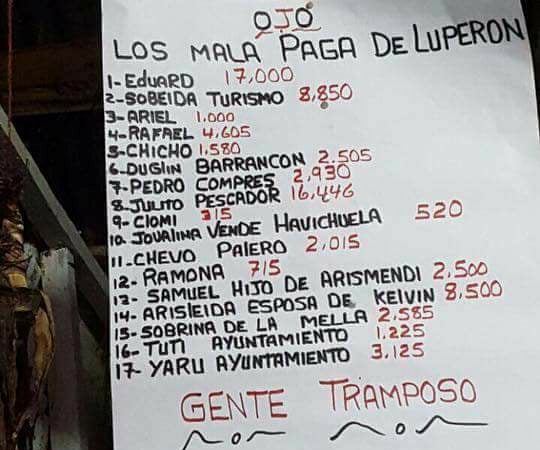 OJO
LOS MALA PAGA DE LUPERON
1- EDUARD 17,000
2- SOBEIDA TURISMO 8,850
3- ARIEL 1.000
4- RAFAEL 4,605
5- CHICHO 1,580
6- DUGLIN BARRANCON 2.505
7- PEDRO COMPRES 2,930
8. JULITO PESCADOR 16,446
9- CIOMI 315
10. JOVALINA VENDE HAVICHUELA 520
11- CHEVO PALERO 2,015
12- RAMONA 715
13- SAMUEL HIJO DE ARISMENDI 2,500
14- ARISLEIDA ESPOSA DE KELVIN 8,500
15- SOBRINA DE LA MELLA 2,585
16- TUTI AYUNTAMIENTO 1.225
17- YARU AYUNTAMIENTO 3,125
GENTE TRAMPOSO